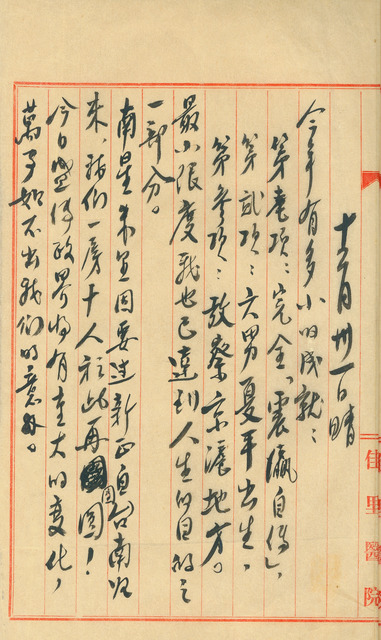 十二月卅一日 晴
今年有多小的成就：
第壱項：完全「震瀛自傳」，
第弍項：六男夏平出生，
第参項：察京滬地方。
最小限度我也已達到人生的目的之
一部分。
南星朱里因要过新正自台南归
来，我們一房十人於此再團圓！
今日盛傳政界將有重大的变化，
萬事如不出我們的意外。
佳里醫院